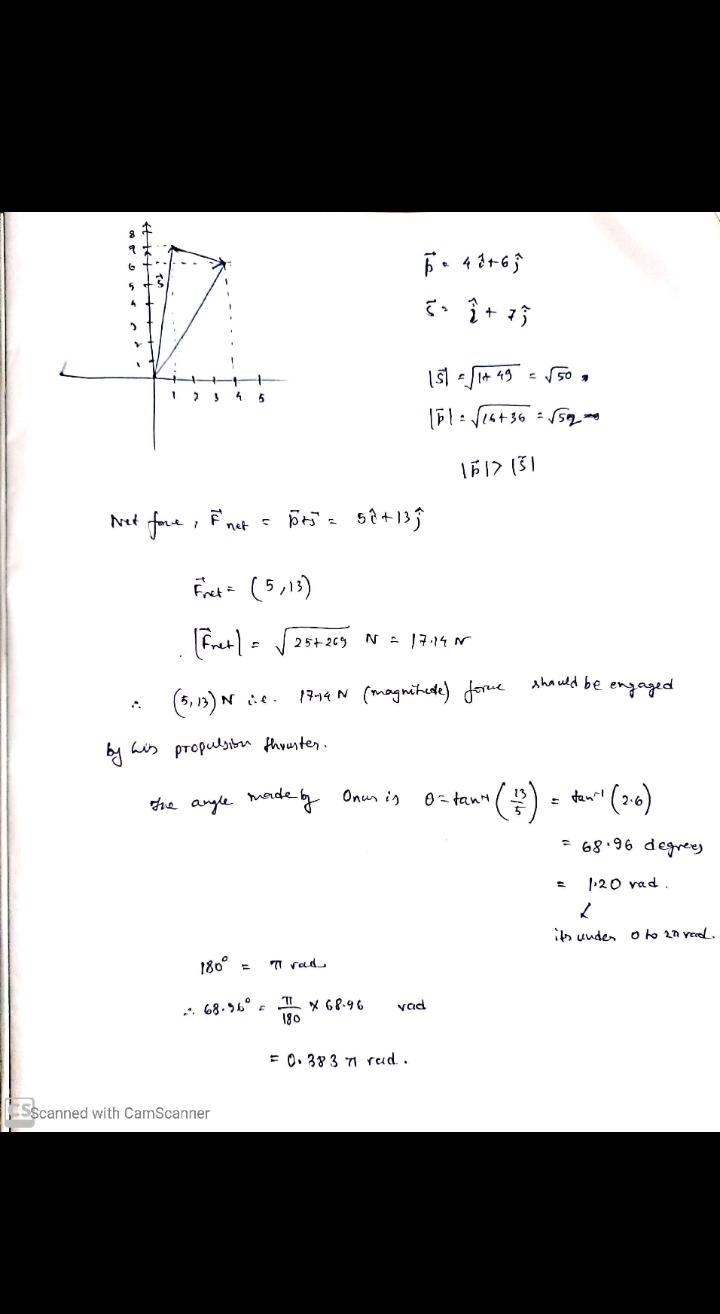 8
9
6
5
4
3
2
1
s⃗
1 2 3 4 5
p⃗ = 4î+6ĵ
s⃗ = î + 7ĵ
|s⃗| = √1+49 = √50
|p⃗| = √16+36 = √52
|p⃗| > |s⃗|
Net force, F⃗net = p⃗+s⃗ = 5î+13ĵ
F⃗net = (5,13)
|F⃗net| = √25+269 N = 17.14 N
∴ (5,13) N i.e. 17.14 N (magnitude) force should be engaged
by his propulsion thruster.
The angle made by Onur is θ = tan⁻¹ (13/5) = tan⁻¹ (2.6)
= 68.96 degrees
= 1.20 rad.
its under 0 to 2π rad.
180° = π rad
∴ 68.96° = π/180 × 68.96 rad
= 0.383 π rad.
CS Scanned with CamScanner